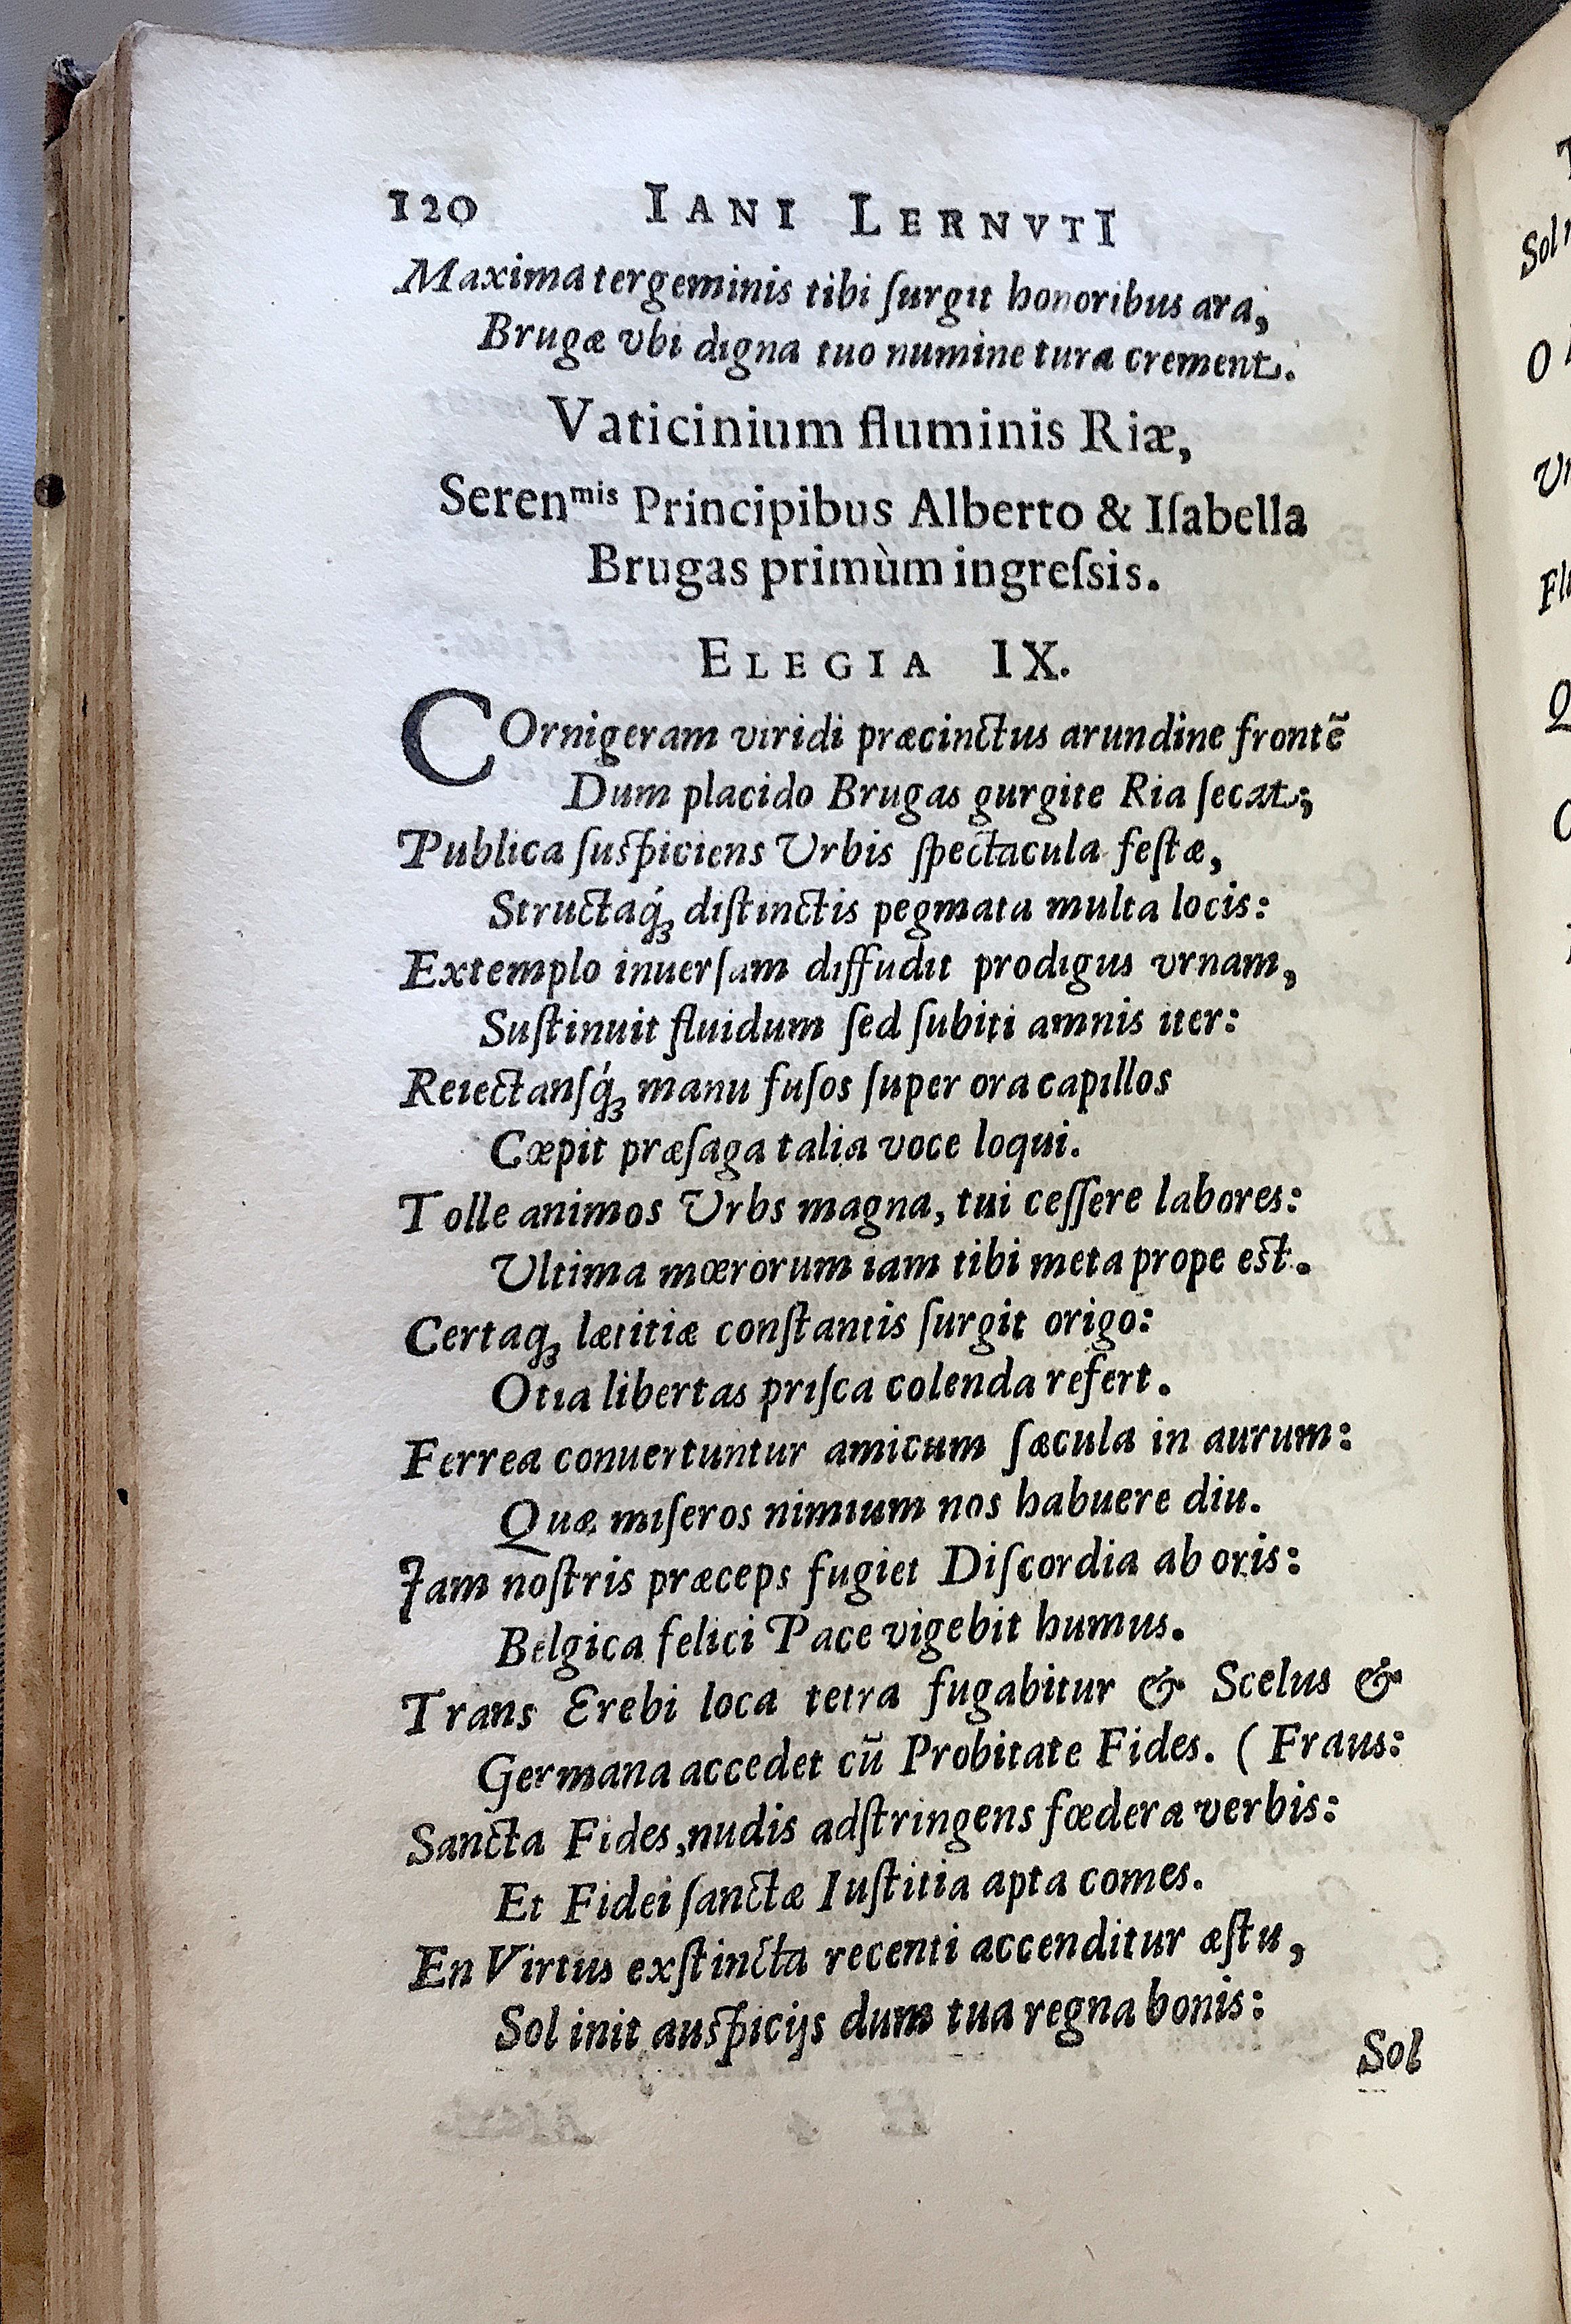 120 IANI LERNVTI
Maxima tergeminis tibi ſurgit honoribus ara,
Brugæ vbi digna tuo numine tura crement.
Vaticinium fluminis Riæ,
Serenmis Principibus Alberto & Iſabella
Brugas primùm ingreſsis.
ELEGIA IX.
COrnigeram viridi præcinctus arundine frontē
Dum placido Brugas gurgite Ria ſecat;
Publica ſuſpiciens Vrbis ſpectacula feſtæ,
Structaq́; diſtinctis pegmata multa locis:
Extemplo inuerſam diffudit prodigus vrnam,
Suſtinuit fluidum ſed ſubiti amnis iter:
Reiectanſq́; manu fuſos ſuper ora capillos
Cœpit præſaga talia voce loqui.
Tolle animos Vrbs magna, tui ceſſere labores:
Vltima mœrorum iam tibi meta prope eſt.
Certaq; lætitiæ conſtantis ſurgit origo:
Otia libertas priſca colenda refert.
Ferrea conuertuntur amicum ſæcula in aurum:
Quæ miſeros nimium nos habuere diu.
Iam noſtris præceps fugiet Diſcordia ab oris:
Belgica felici Pace vigebit humus.
Trans Erebi loca tetra fugabitur & Scelus &
Germana accedet cū Probitate Fides. ( Fraus:
Sancta Fides, nudis adſtringens fœdera verbis:
Et Fidei ſanctæ Iuſtitia apta comes.
En Virtus exſtincta recenti accenditur æſtu,
Sol init auſpicijs dum tua regna bonis:
Sol